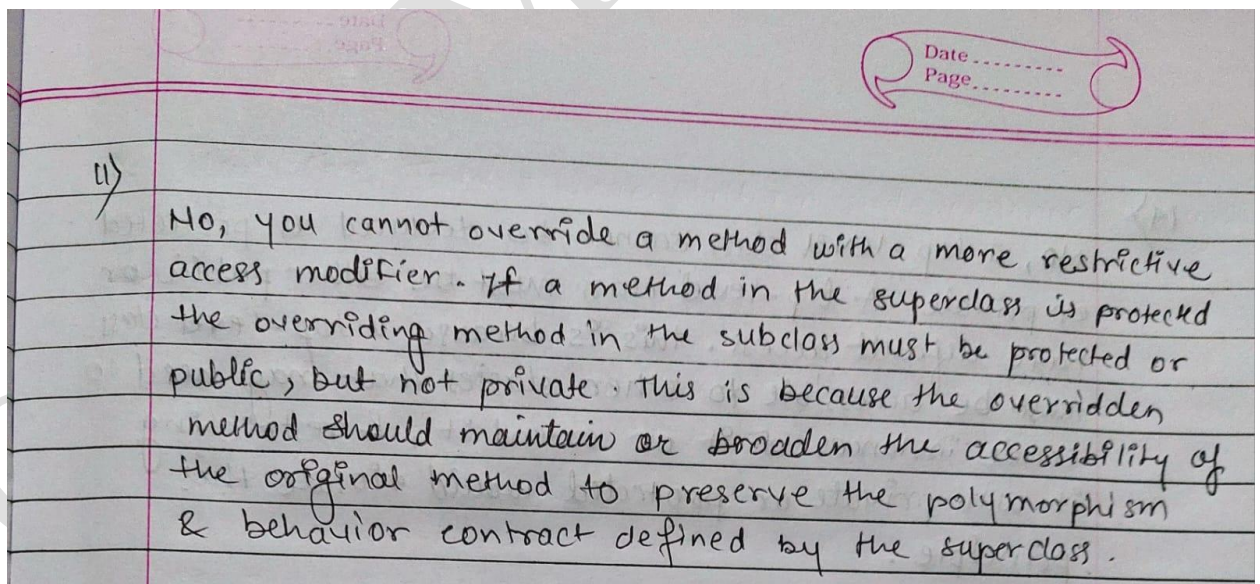 Date.........
Page.........
11)
No, you cannot override a method with a more restrictive
access modifier. If a method in the superclass is protected
the overriding method in the subclass must be protected or
public, but not private. This is because the overridden
method should maintain or broaden the accessibility of
the original method to preserve the polymorphism
& behavior contract defined by the superclass.